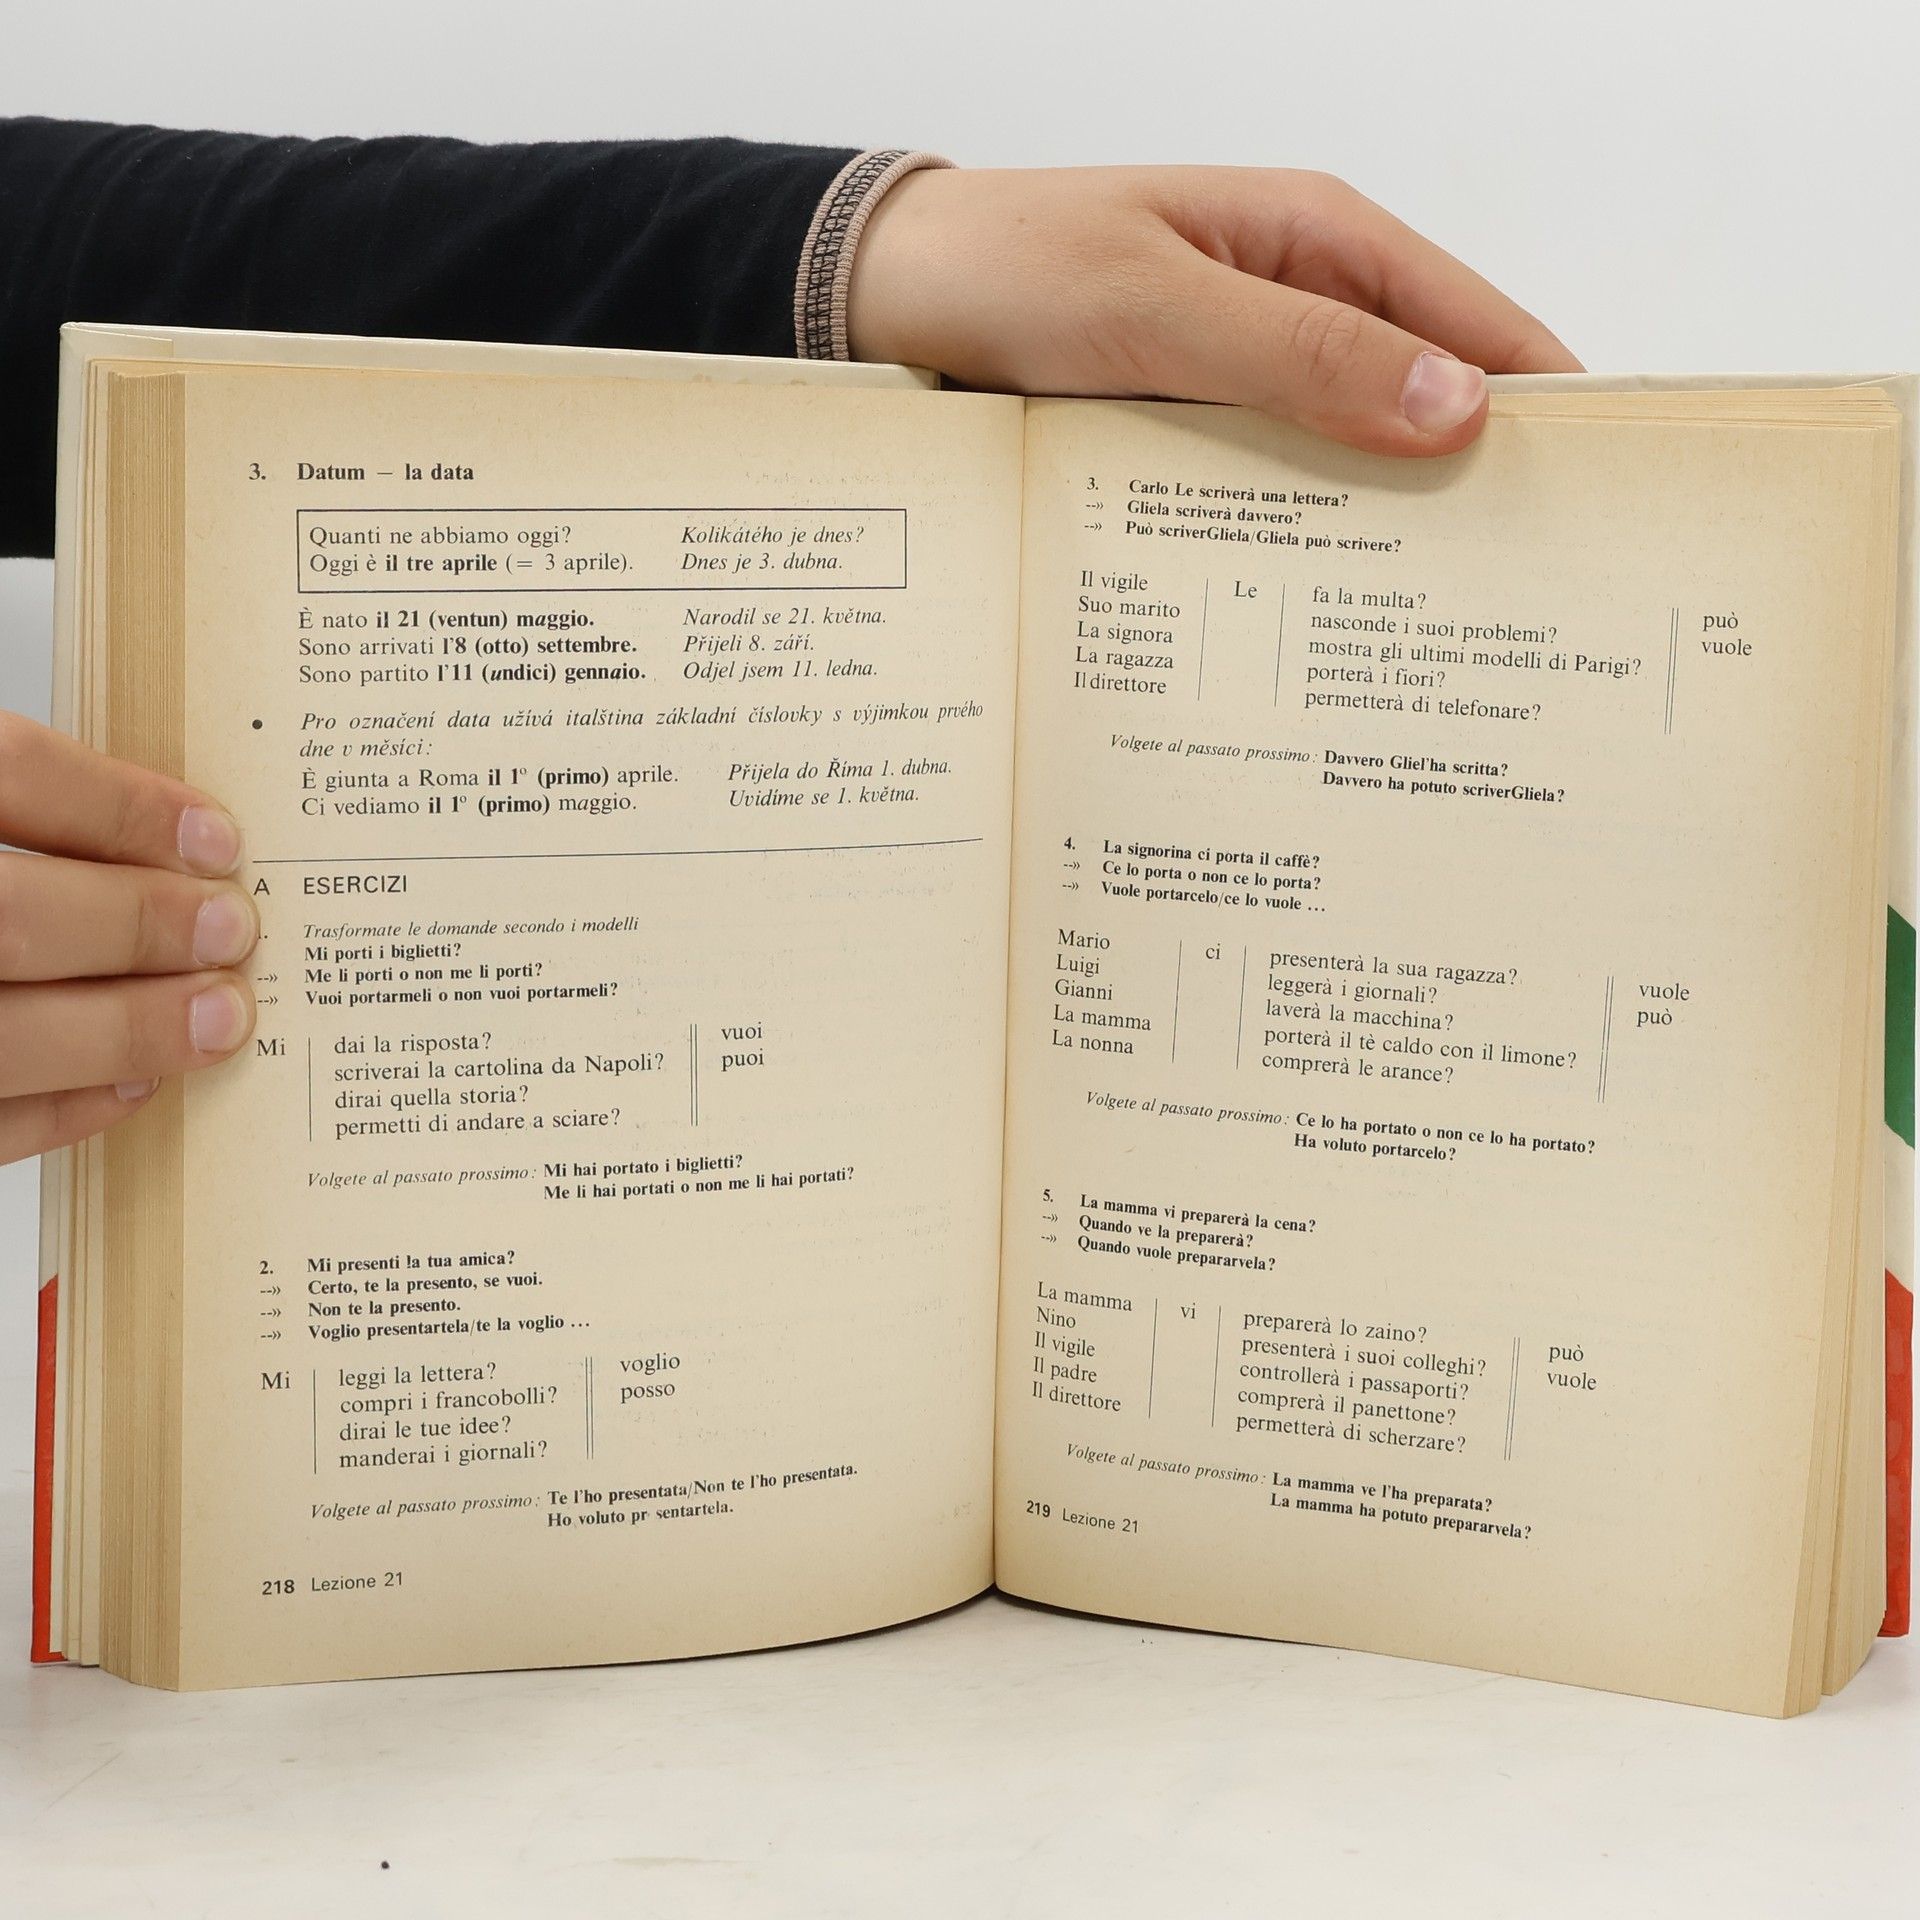 3. Datum — la data
Quanti ne abbiamo oggi? Kolikátého je dnes?
Oggi è il tre aprile (= 3 aprile). Dnes je 3. dubna.
È nato il 21 (ventun) maggio. Narodil se 21. května.
Sono arrivati l'8 (otto) settembre. Přijeli 8. září.
Sono partito l'11 (undici) gennaio. Odjel jsem 11. ledna.
• Pro označení data užívá italština základní číslovky s výjimkou prvého
dne v měsíci:
È giunta a Roma il 1º (primo) aprile. Přijela do Říma 1. dubna.
Ci vediamo il 1º (primo) maggio. Uvidíme se 1. května.
A ESERCIZI
. Trasformate le domande secondo i modelli
Mi porti i biglietti?
--» Me li porti o non me li porti?
--» Vuoi portarmeli o non vuoi portarmeli?
Mi dai la risposta? vuoi
scriverai la cartolina da Napoli? puoi
dirai quella storia?
permetti di andare a sciare?
Volgete al passato prossimo: Mi hai portato i biglietti?
Me li hai portati o non me li hai portati?
2. Mi presenti la tua amica?
--» Certo, te la presento, se vuoi.
--» Non te la presento.
--» Voglio presentartela/te la voglio ...
Mi leggi la lettera? voglio
compri i francobolli? posso
dirai le tue idee?
manderai i giornali?
Volgete al passato prossimo: Te l'ho presentata/Non te l'ho presentata.
Ho voluto pr sentartela.
218 Lezione 21
3. Carlo Le scriverà una lettera?
--» Gliela scriverà davvero?
--» Può scriverGliela/Gliela può scrivere?
Il vigile Le fa la multa? può
Suo marito nasconde i suoi problemi? vuole
La signora mostra gli ultimi modelli di Parigi?
La ragazza porterà i fiori?
Il direttore permetterà di telefonare?
Volgete al passato prossimo: Davvero Gliel'ha scritta?
Davvero ha potuto scriverGliela?
4. La signorina ci porta il caffè?
--» Ce lo porta o non ce lo porta?
--» Vuole portarcelo/ce lo vuole ...
Mario ci presenterà la sua ragazza? vuole
Luigi leggerà i giornali? può
Gianni laverà la macchina?
La mamma porterà il tè caldo con il limone?
La nonna comprerà le arance?
Volgete al passato prossimo: Ce lo ha portato o non ce lo ha portato?
Ha voluto portarcelo?
5. La mamma vi preparerà la cena?
--» Quando ve la preparerà?
--» Quando vuole prepararvela?
La mamma vi preparerà lo zaino? può
Nino presenterà i suoi colleghi? vuole
Il vigile controllerà i passaporti?
Il padre comprerà il panettone?
Il direttore permetterà di scherzare?
Volgete al passato prossimo: La mamma ve l'ha preparata?
La mamma ha potuto prepararvela?
219 Lezione 21